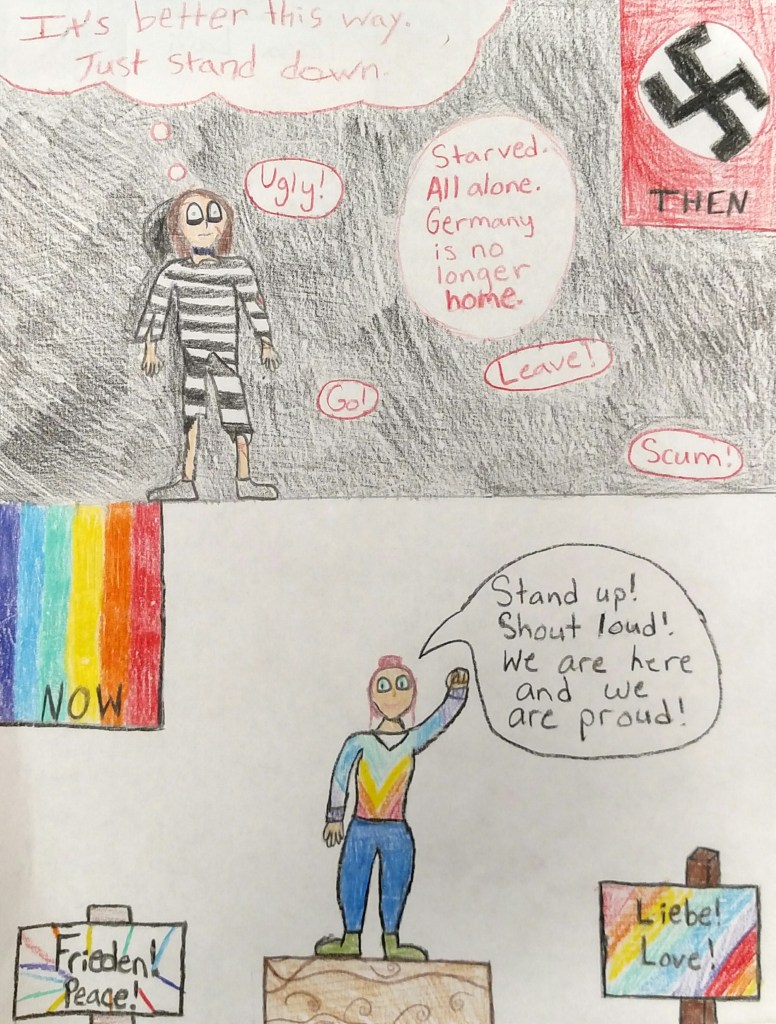 It's better this way.
Just stand down.
THEN
Ugly!
Starved.
All alone.
Germany
is no
longer
home.
Leave!
Go!
Scum!
NOW
Stand up!
Shout loud!
We are here
and we
are proud!
Frieden!
Peace!
Liebe!
Love!